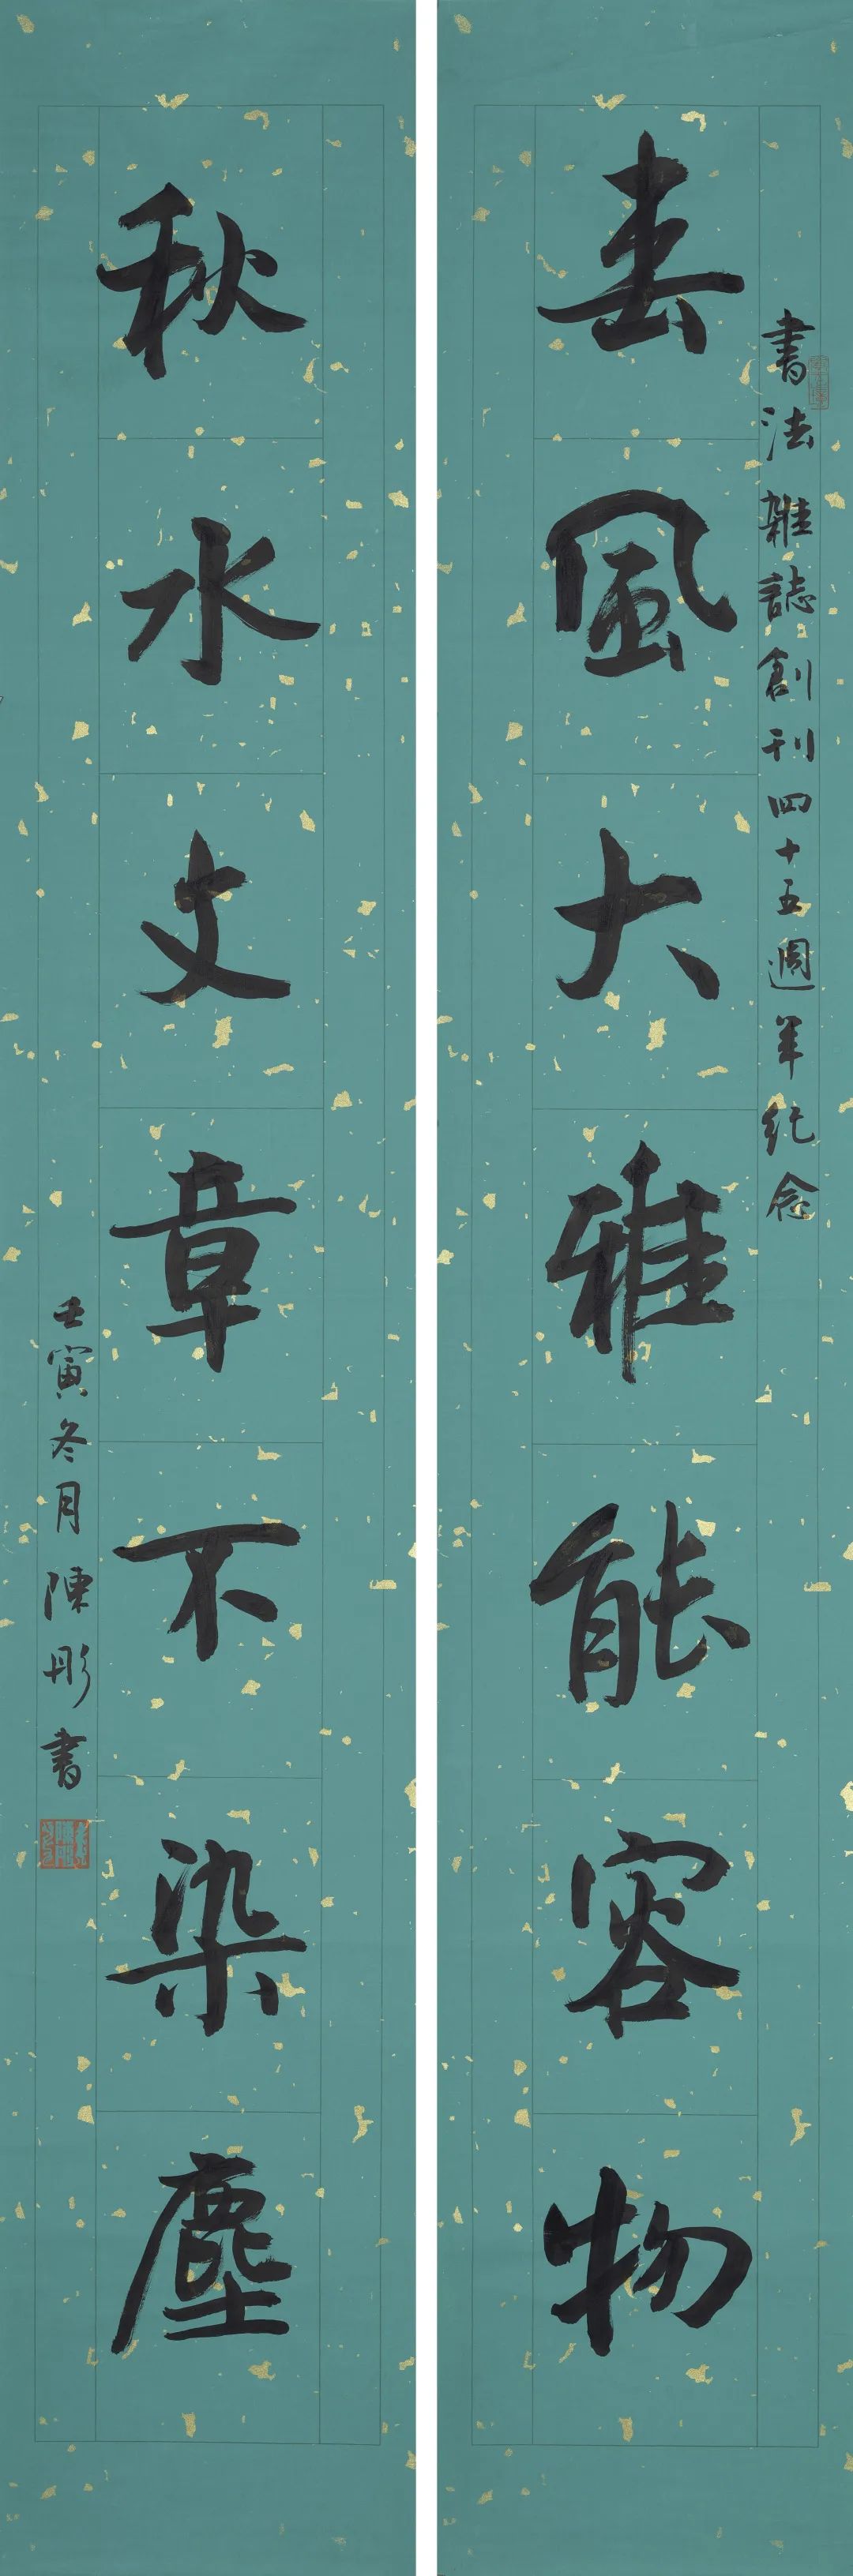 書法雜誌創刊四十五週年纪念
春風大雅能容物
秋水文章不染塵
壬寅冬月陳彤書